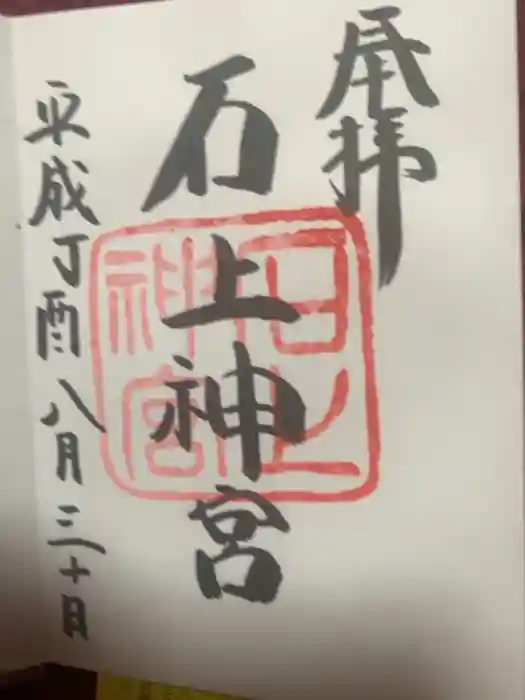 奉拝
石上神宮
石上神宮
平成丁酉八月三十日